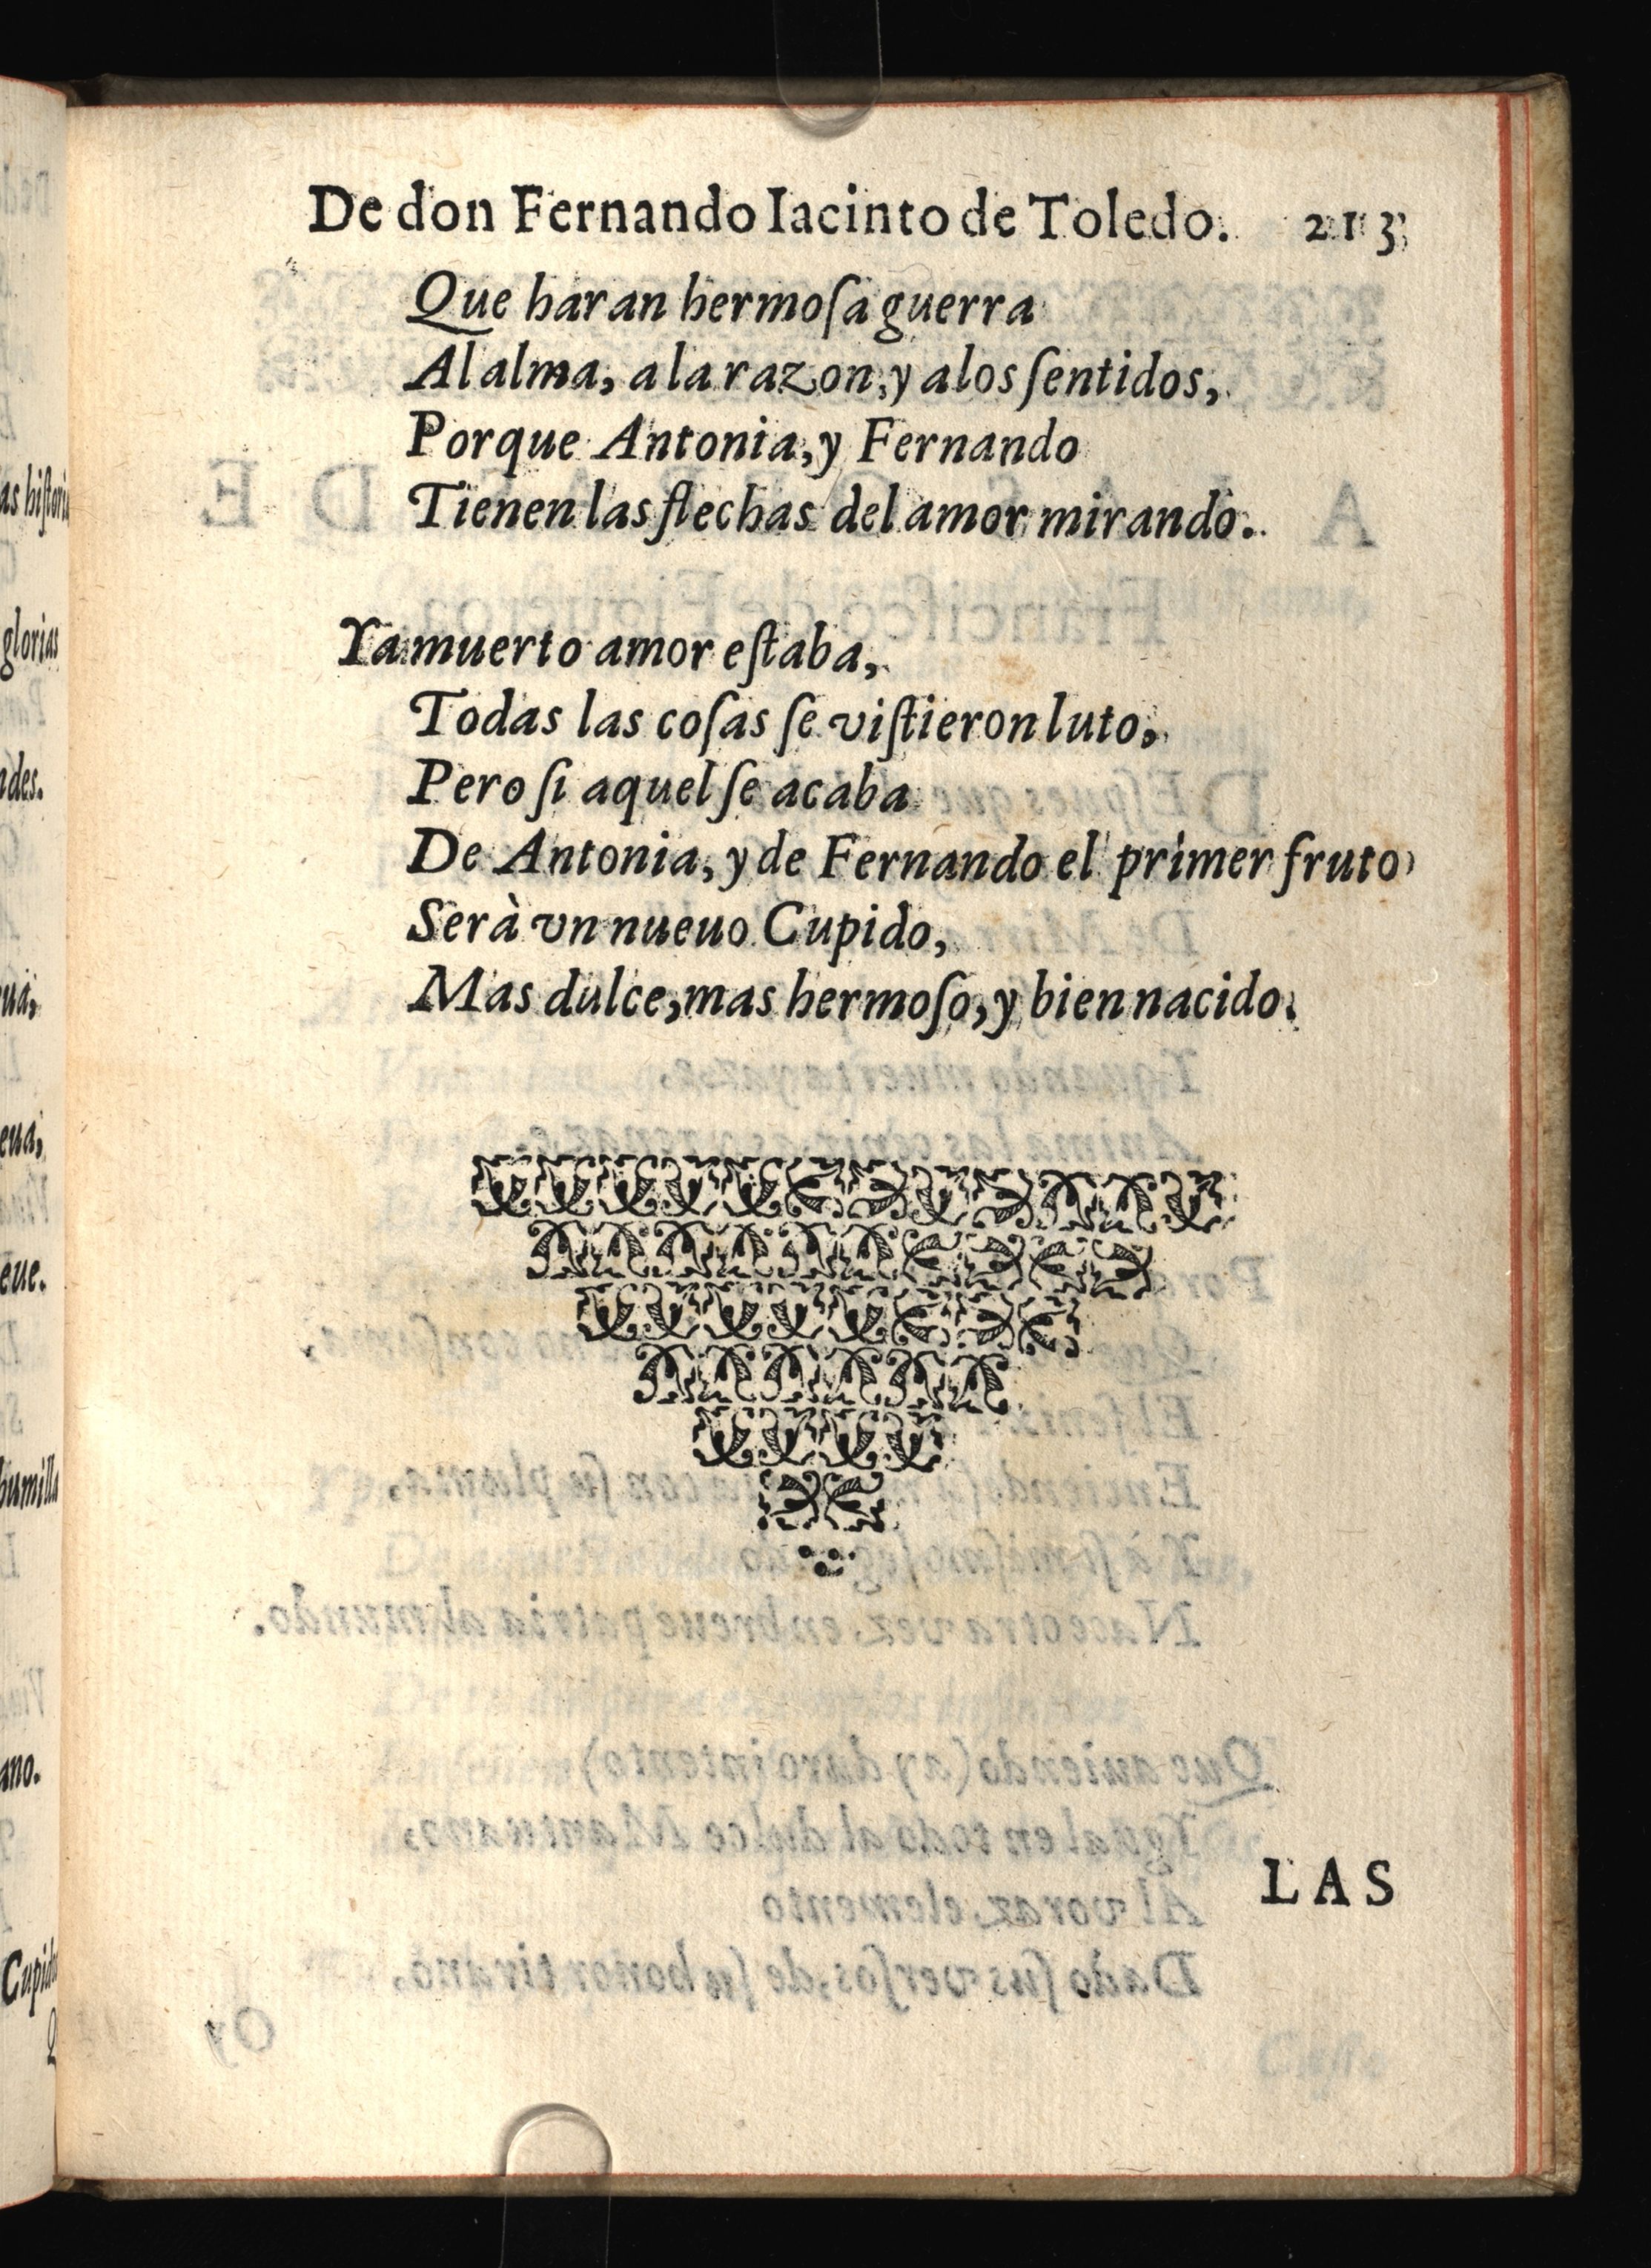 De don Fernando Iacinto de Toledo. 213
Que haran hermoſa guerra
Al alma, a la razon, y a los ſentidos,
Porque Antonia, y Fernando
Tienen las flechas del amor mirando.
Ya muerto amor eſtaba,
Todas las coſas ſe viſtieron luto,
Pero ſi aquel ſe acaba
De Antonia, y de Fernando el primer fruto
Serà vn nueuo Cupido,
Mas dulce, mas hermoſo, y bien nacido.
LAS